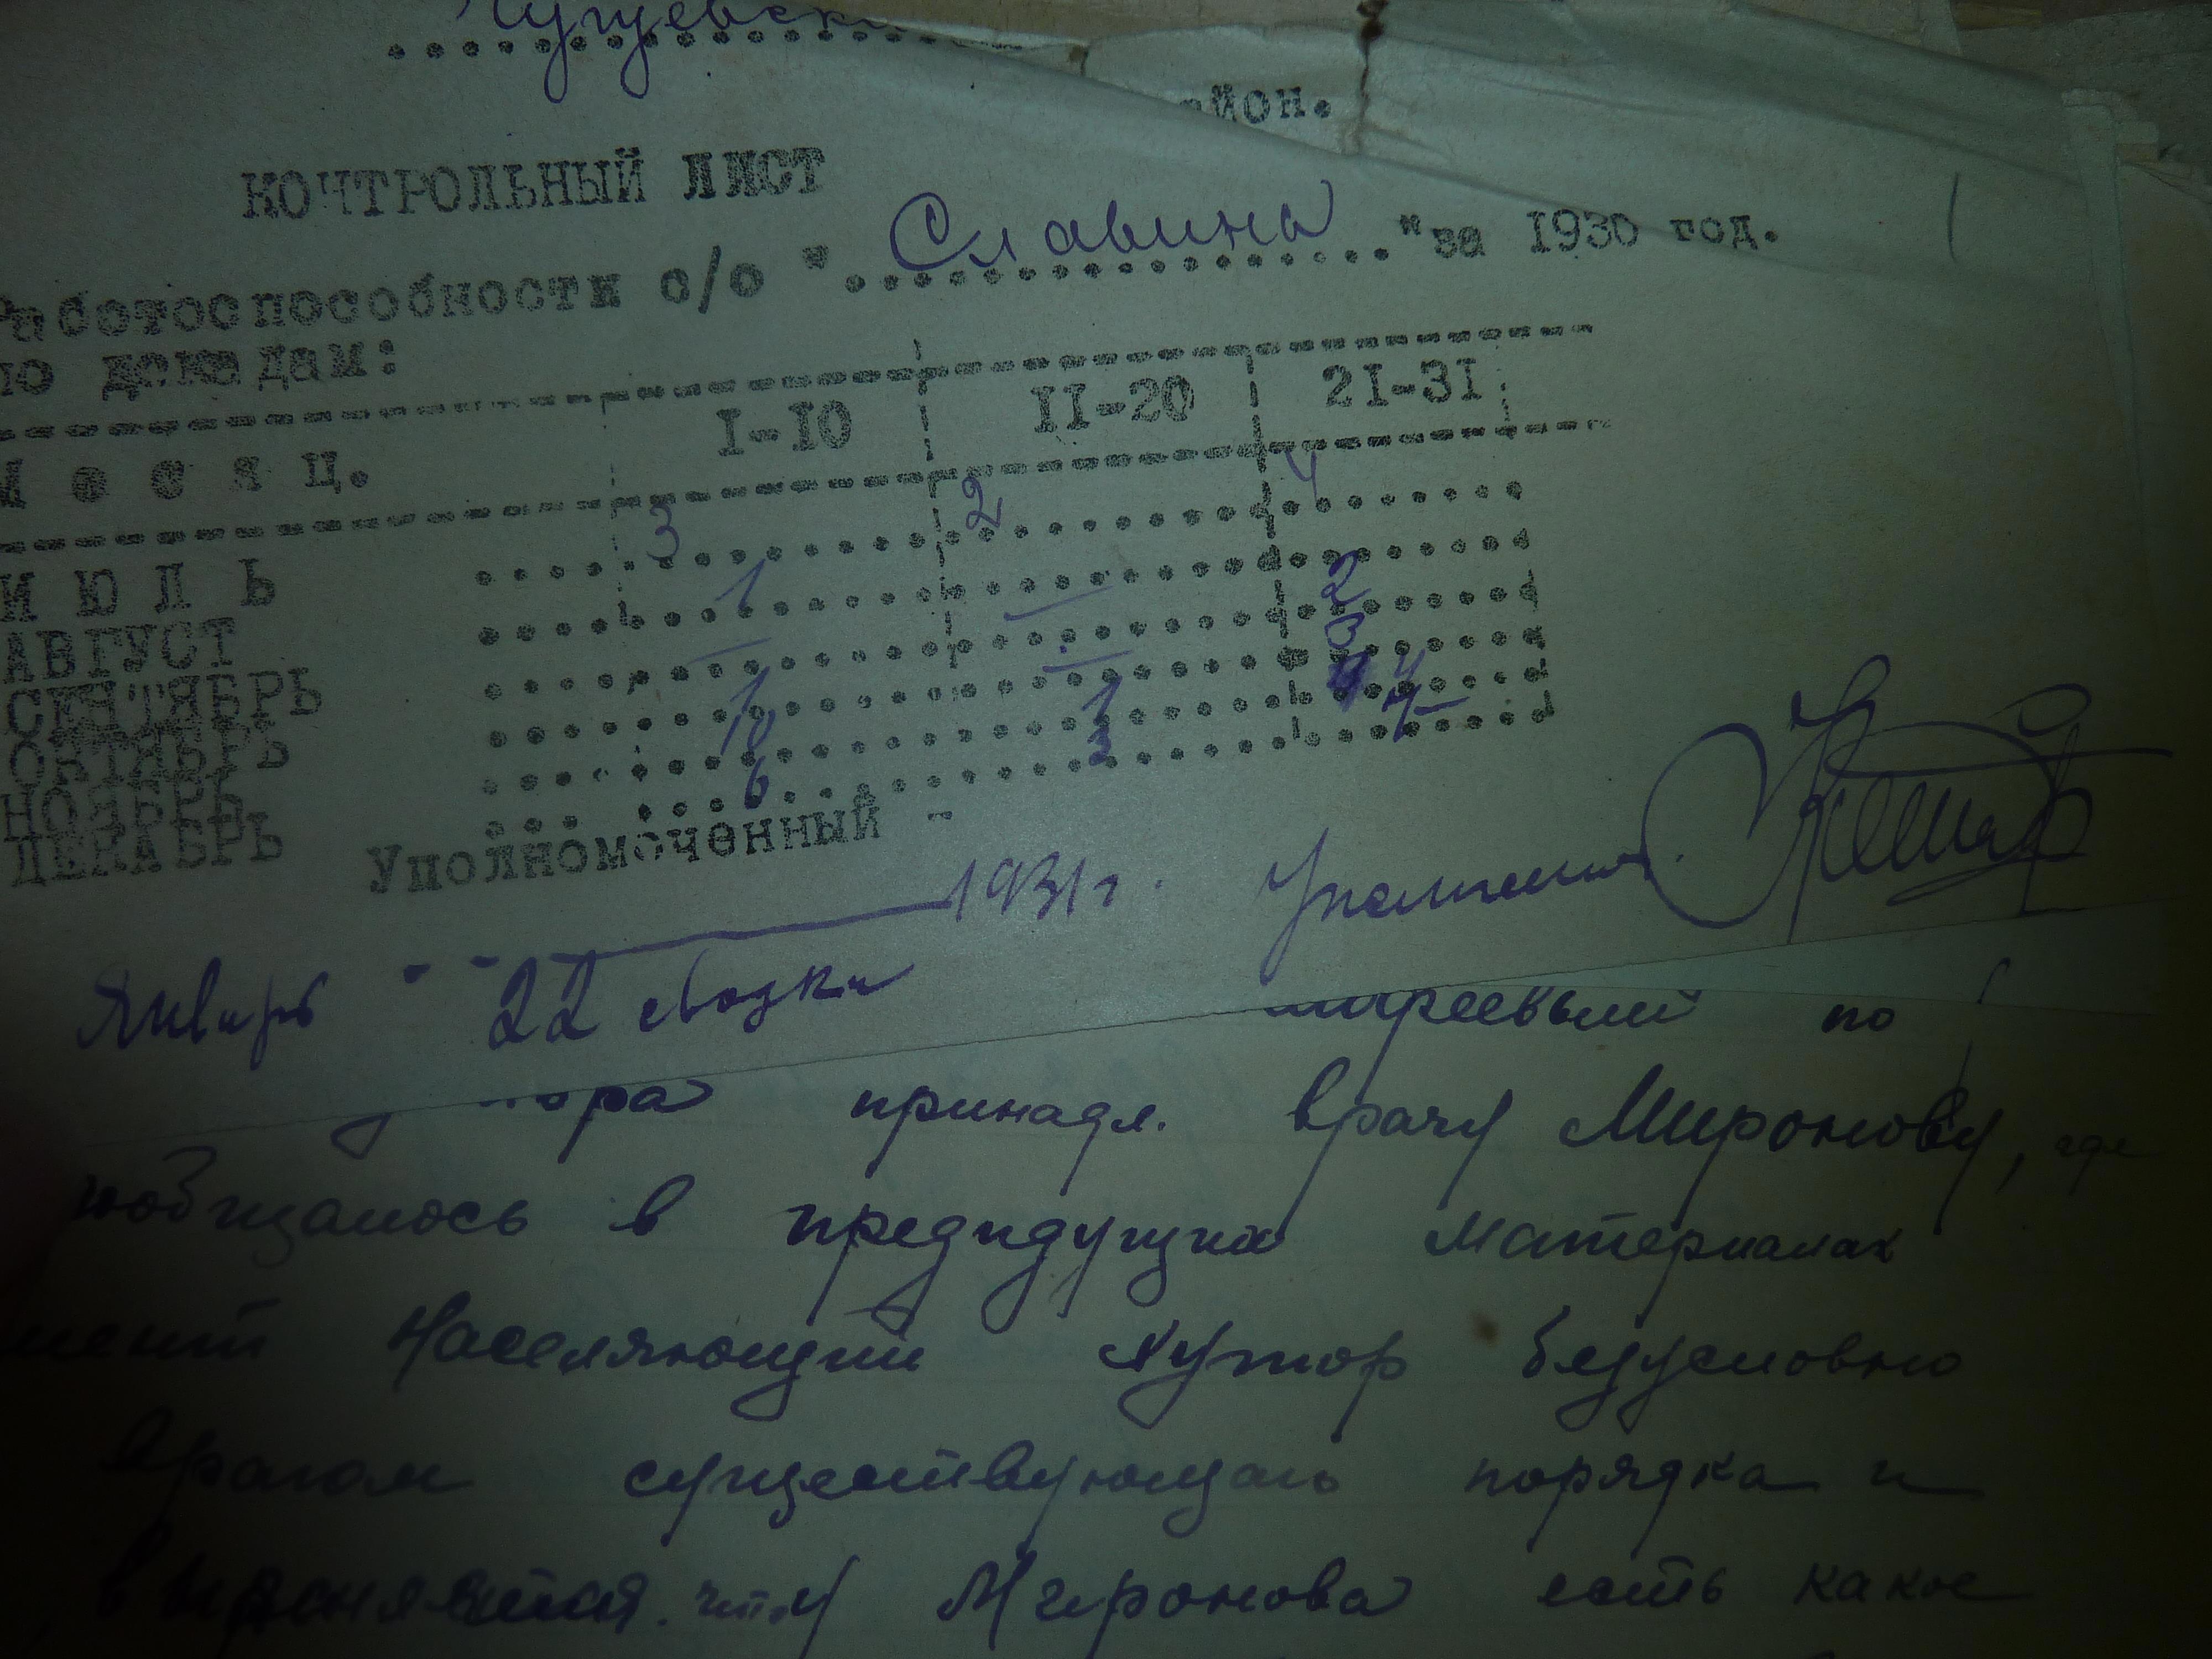 Чугуевск
йон.
КОНТРОЛЬНЫЙ ЛИСТ
Работоспособности с/о "Славина" за 1930 год.
по декадам:
Месяц. I-I0 II-20 2I-3I
ИЮЛЬ 3 2 4
АВГУСТ 1 — 2
СЕНТЯБРЬ — — 3
ОКТЯБРЬ 1
НОЯБРЬ 10 1 4
ДЕКАБРЬ 6 3
Уполномоченный -
1931 г.
Январь - - 22 сводки
по
принадл. врачу Миронову, где
сообщалось в предидущих материалах
Населяющий Хутор безусловно
врагом существующаго порядка и
выясняется. что у Миронова есть какое